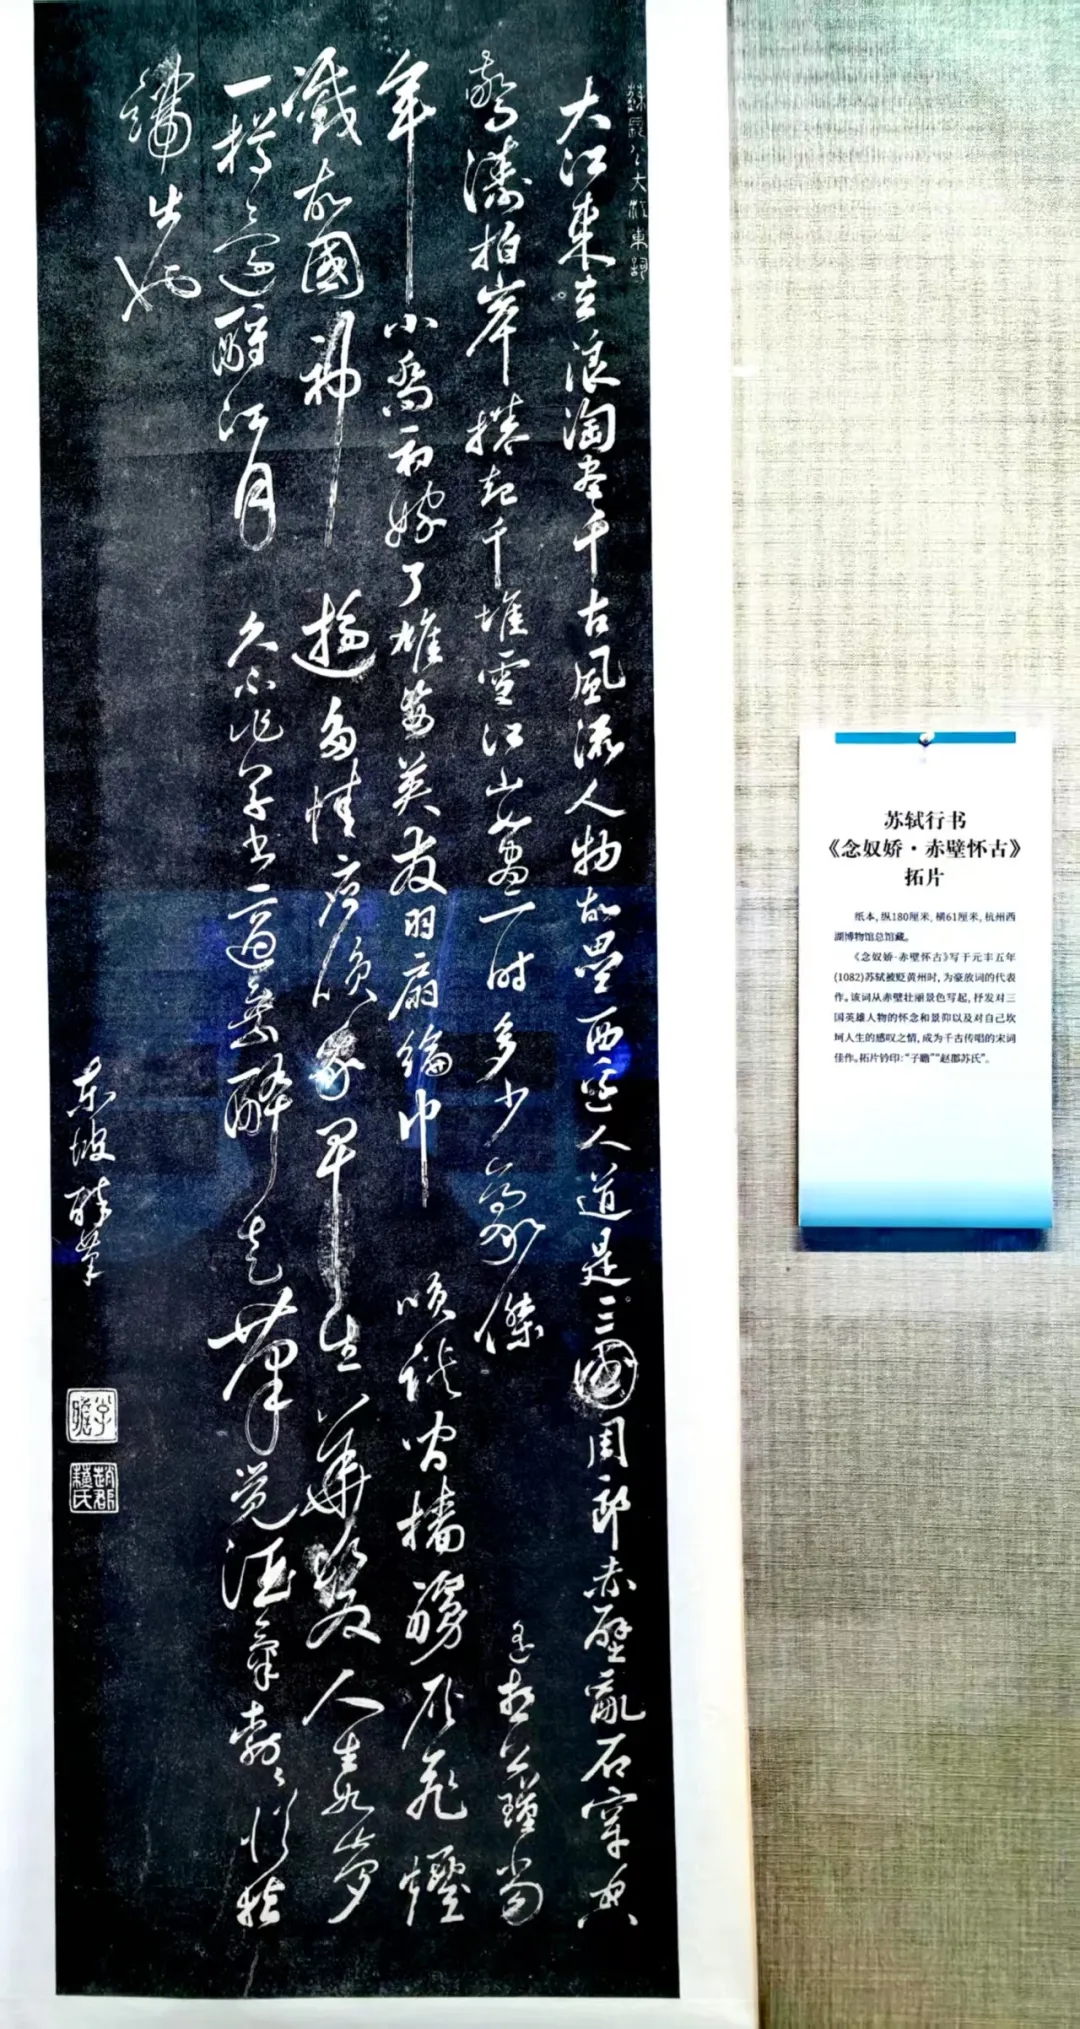 蘇長公大江東詞
大江東去浪淘盡千古風流人物故壘西邊人道是三國周郎赤壁亂石穿空
驚濤拍岸捲起千堆雪江山如畫一時多少豪傑 遙想公瑾當
年小喬初嫁了雄姿英發羽扇綸巾 笑談間檣艣灰飛煙
滅故國神遊多情應笑我早生華髮人生如夢
一樽還酹江月 久不作草書適乘醉走筆覺酒氣勃勃從指
端出也
東坡醉筆
子瞻
趙郡蘇氏
苏轼行书
《念奴娇·赤壁怀古》
拓片
纸本，纵180厘米，横61厘米，杭州西
湖博物馆总馆藏。
《念奴娇·赤壁怀古》写于元丰五年
(1082)苏轼被贬黄州时，为豪放词的代表
作。该词从赤壁壮丽景色写起，抒发对三
国英雄人物的怀念和景仰以及对自己坎
坷人生的感叹之情，成为千古传唱的宋词
佳作。拓片钤印：“子瞻”“赵郡苏氏”。